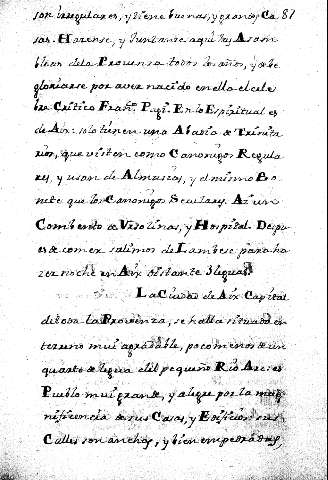 son irregulares, y tiene buenas, y grandes Ca 87
sas. Hazense, y Juntanse aqui las Asam
bleas de la Provensa todos los años, y de be
gloriarse por aver nacido en ella el cele
bre Critico Fran.co Pagi. En lo Espiritual es
de Aix. solo tienen una Abadia de Trinita
rios, que visten como Canonigos Regula
res, y usan de Almuzas, y el mismo Bo
nete que los Canonigos Seculares. Ay un
Combento de Ursolinas, y Hospital. Despu
es de comer salimos de Lambesc para ha
zer noche en Aix distante 3 leguas
La Ciudad de Aix Capital
de toda la Provenza, se halla situada en
terreno mui agradable, poco menos de un
quarto de legua del pequeño Rio Arc: es
Pueblo mui grande, y alegre por la mag
nificencia de sus Casas, y Edificios sus
Calles son anchas, y bien empedradas,